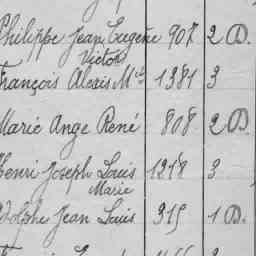 Philippe Jean Eugène 907 2 D.
Victor
François Alexis Mie 1381 3
Marie Ange René 808 2 D.
Henri Joseph Louis 1318 3
Marie
Adolphe Jean Louis 315 1 D.